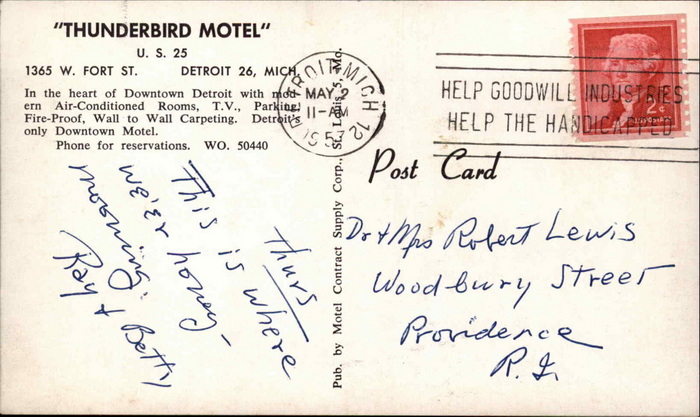 "THUNDERBIRD MOTEL"
U. S. 25
1365 W. FORT ST. DETROIT 26, MICH.
In the heart of Downtown Detroit with mod-
ern Air-Conditioned Rooms, T.V., Parking,
Fire-Proof, Wall to Wall Carpeting. Detroit's
only Downtown Motel.
Phone for reservations. WO. 50440
Thurs
This is where
we'er honey-
mooning.
Ray & Betty
Pub. by Motel Contract Supply Corp., St. Louis 5, Mo.
DETROIT, MICH 12
MAY 2
11-AM
1957
HELP GOODWILL INDUSTRIES
HELP THE HANDICAPPED
2¢
Post Card
Dr & Mrs Robert Lewis
Woodbury Street
Providence
R.I.